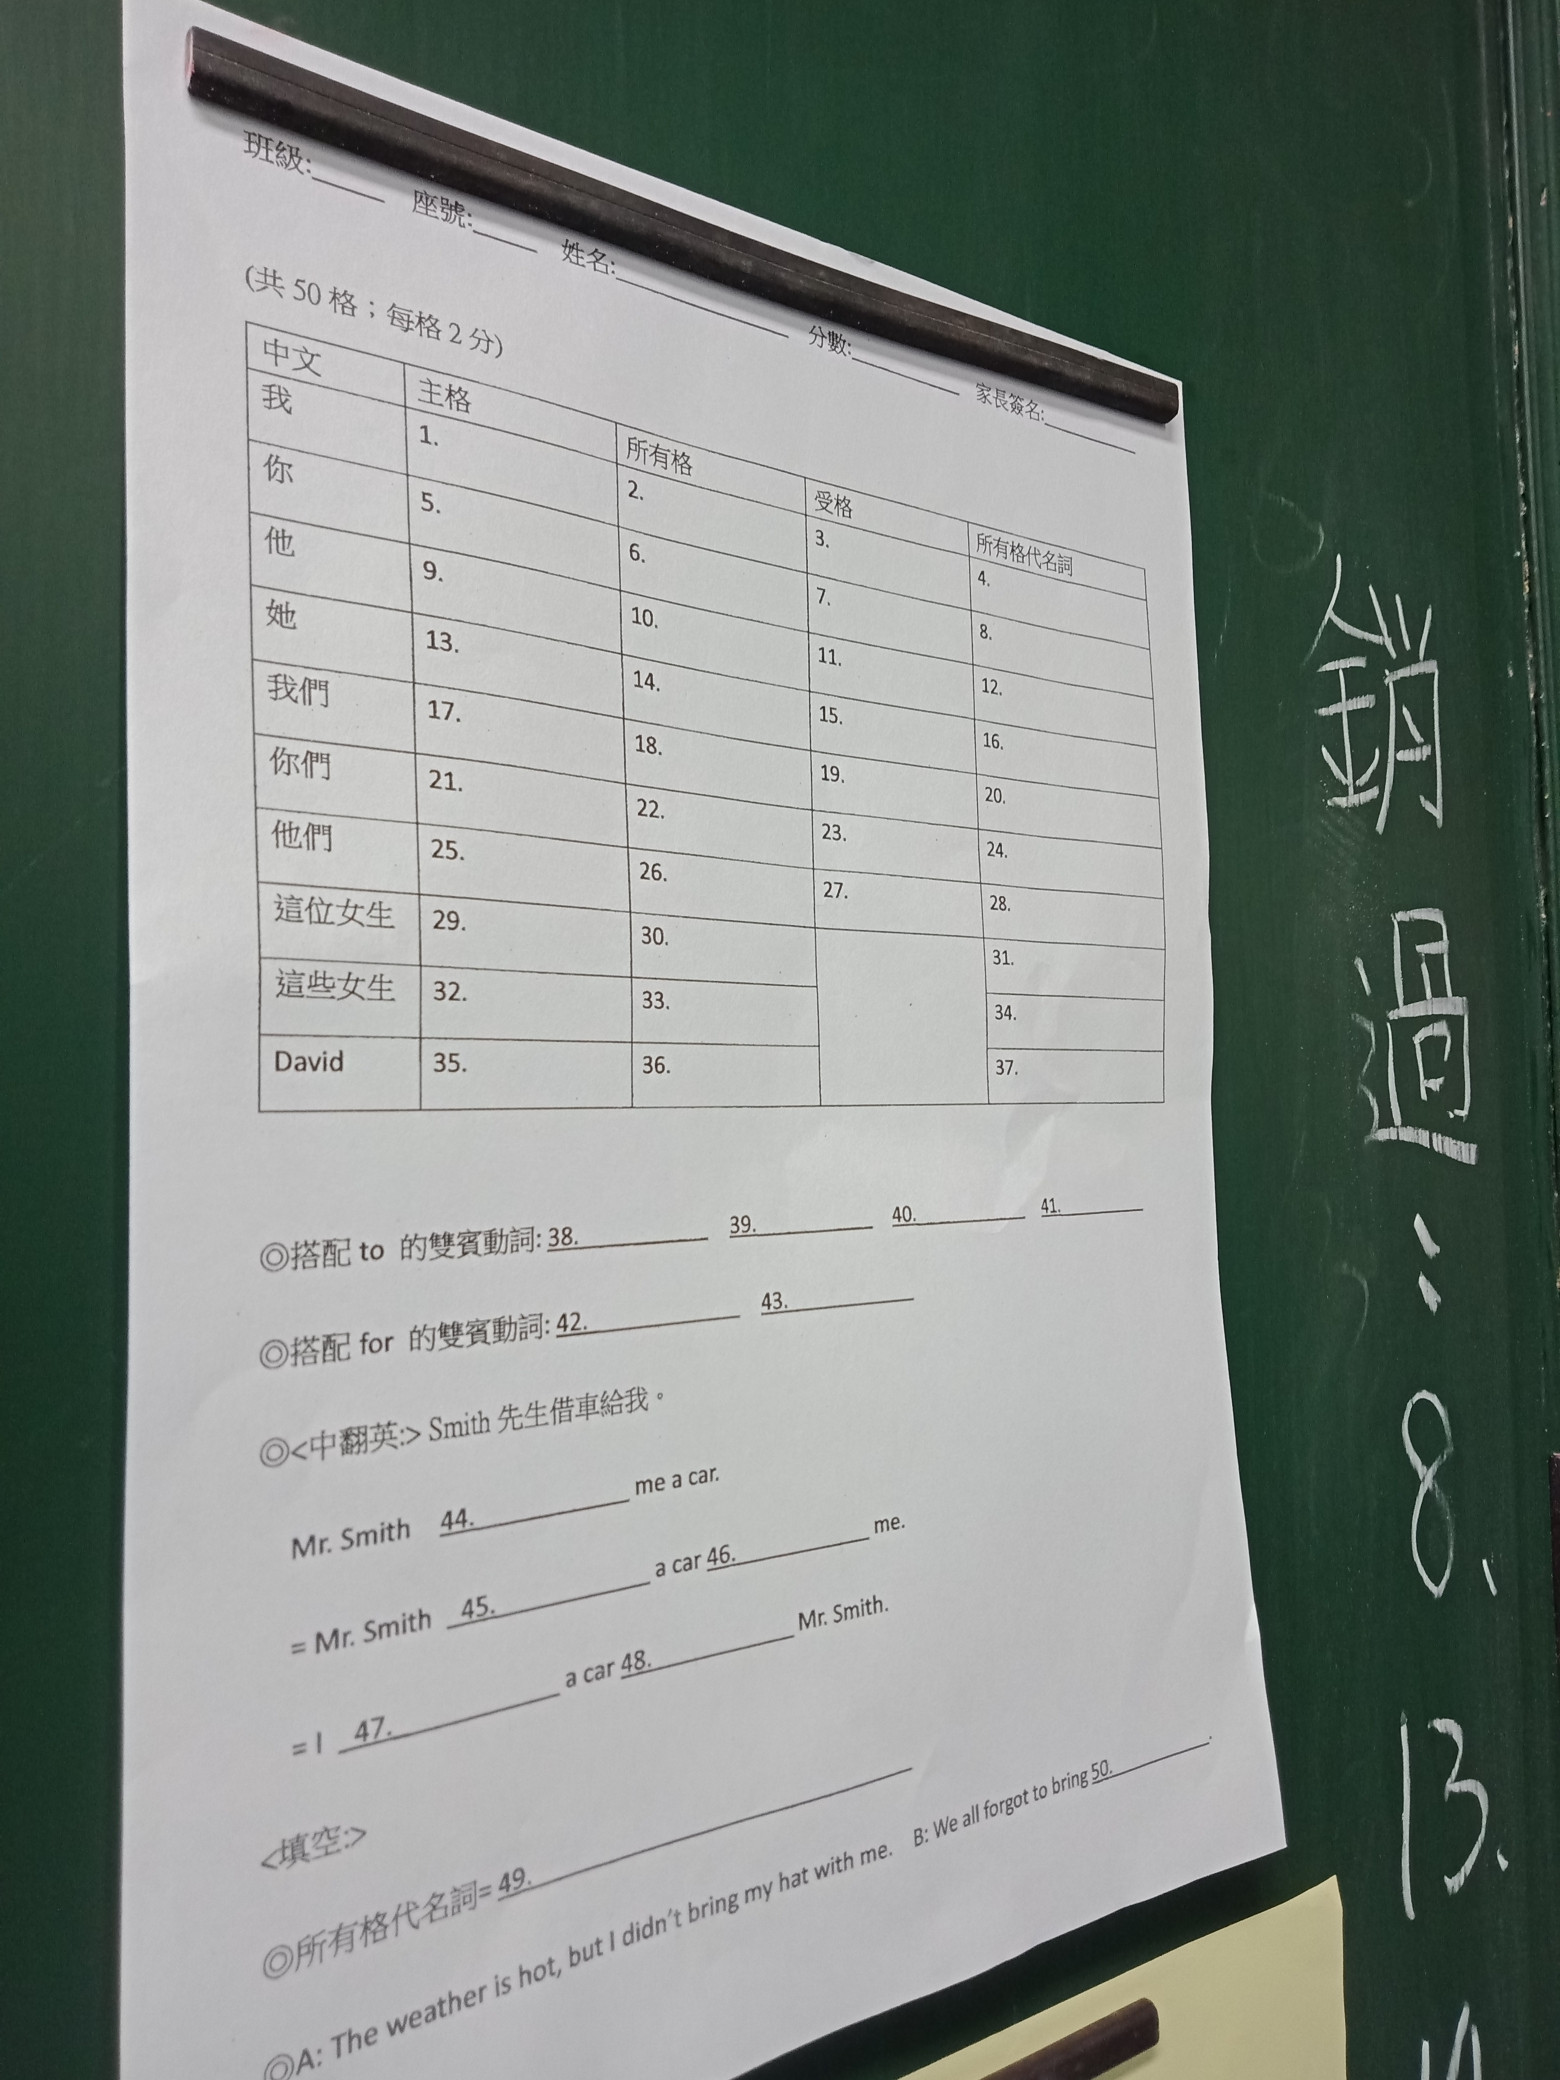 班級:____ 座號:____ 姓名:____ 分數:____ 家長簽名:____
(共 50 格；每格 2 分)
中文 主格 所有格 受格 所有格代名詞
我 1. 2. 3. 4.
你 5. 6. 7. 8.
他 9. 10. 11. 12.
她 13. 14. 15. 16.
我們 17. 18. 19. 20.
你們 21. 22. 23. 24.
他們 25. 26. 27. 28.
這位女生 29. 30. 31.
這些女生 32. 33. 34.
David 35. 36. 37.
◎搭配 to 的雙賓動詞: 38.____ 39.____ 40.____ 41.____
◎搭配 for 的雙賓動詞: 42.____ 43.____
◎<中翻英:> Smith 先生借車給我。
Mr. Smith 44.____ me a car.
= Mr. Smith 45.____ a car 46.____ me.
= I 47.____ a car 48.____ Mr. Smith.
<填空:>
◎所有格代名詞= 49.____
◎A: The weather is hot, but I didn't bring my hat with me. B: We all forgot to bring 50.____.
銷過：8、13、